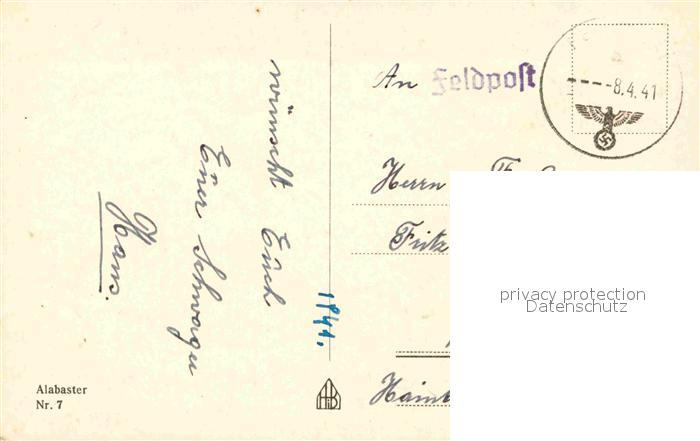 wünscht Euch
Euer Schwager
Hans.
Alabaster
Nr. 7
1941.
An Feldpost
8.4.41
Herrn
Fritz
privacy protection
Datenschutz